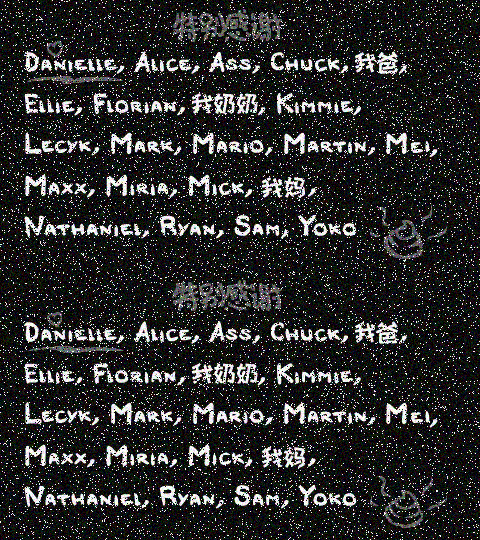 特别感谢
Danielle, Alice, Ass, Chuck, 我爸,
Ellie, Florian, 我奶奶, Kimmie,
Lecyk, Mark, Mario, Martin, Mei,
Maxx, Miria, Mick, 我妈,
Nathaniel, Ryan, Sam, Yoko
特别感谢
Danielle, Alice, Ass, Chuck, 我爸,
Ellie, Florian, 我奶奶, Kimmie,
Lecyk, Mark, Mario, Martin, Mei,
Maxx, Miria, Mick, 我妈,
Nathaniel, Ryan, Sam, Yoko